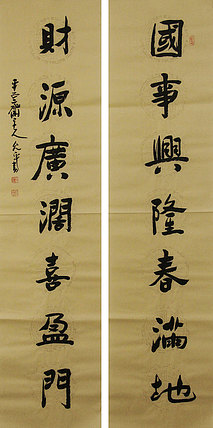 國事興隆春滿地
財源廣濶喜盈門